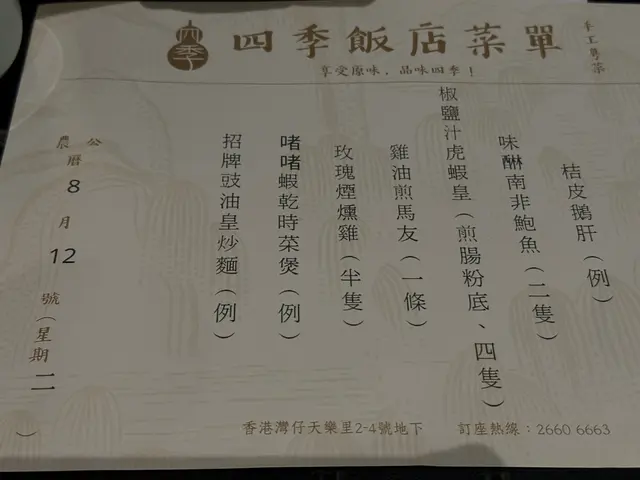 四季
四季飯店菜單
手工粵菜
享受原味，品味四季！
桔皮鵝肝（例）
味醂南非鮑魚（二隻）
椒鹽汁虎蝦皇（煎腸粉底、四隻）
雞油煎馬友（一條）
玫瑰煙燻雞（半隻）
啫啫蝦乾時菜煲（例）
招牌豉油皇炒麵（例）
公
農曆8月12號（星期二）
香港灣仔天樂里2-4號地下
訂座熱線：2660 6663